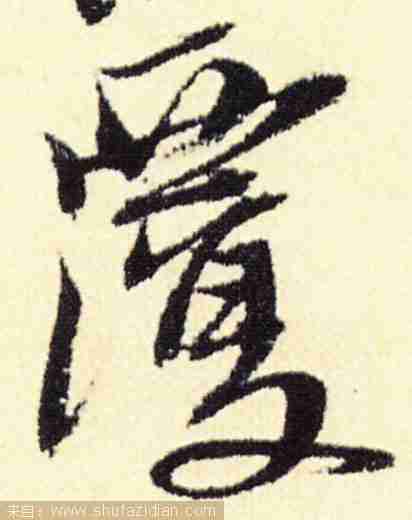 覆
来自：www.shufazidian.com